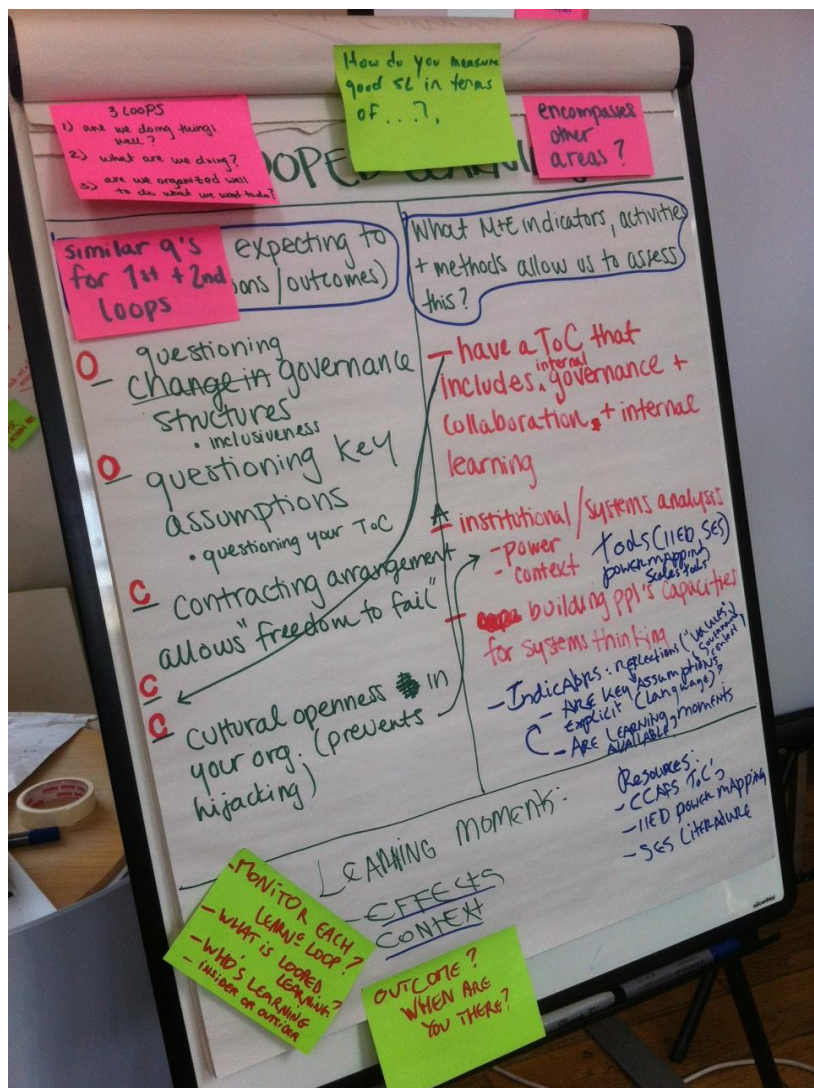 How do you measure
good SL in terms
of...?,
3 LOOPS
1) are we doing things
well?
2) what are we doing?
3) are we organized well
to do what we want to do?
encompasses
other
areas?
LOOPED LEARNING
similar q's
for 1st + 2nd
loops
expecting to
/outcomes)
What M+E indicators, activities
+ methods allow us to assess
this?
O questioning
– change in governance
structures
• inclusiveness
O – questioning key
assumptions
• questioning your ToC
C – contracting arrangement
allows "freedom to fail"
C –
C – cultural openness in
your org. (prevents
hijacking)
– have a ToC that
includes internal governance +
collaboration + internal
learning
A – institutional/systems analysis
– power
– context
Tools (IIED, SES)
power mapping
scales tools
– building ppl's capacities
for systems thinking
– Indicators: reflections ('values',
governance context)
– ARE KEY ASSUMPTIONS
EXPLICIT (language)?
– ARE LEARNING MOMENTS
AVAILABLE?
LEARNING MOMENTS:
– EFFECTS
CONTEXT
Resources:
– CCAFS ToC,
– IIED power mapping
– SES Literature
– MONITOR EACH
LEARNG LOOP?
– WHAT IS LOOPED
LEARNING?
– WHO'S LEARNING
– INSIDER OR OUTSIDER
OUTCOME?
WHEN ARE
YOU THERE?
niceday